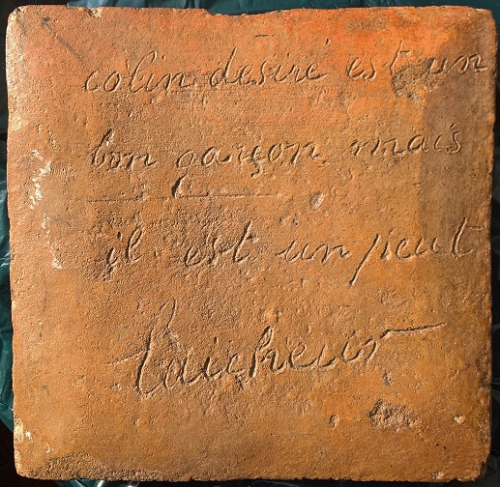 colin désiré est un
bon garçon mais
il est un peut
laicheur